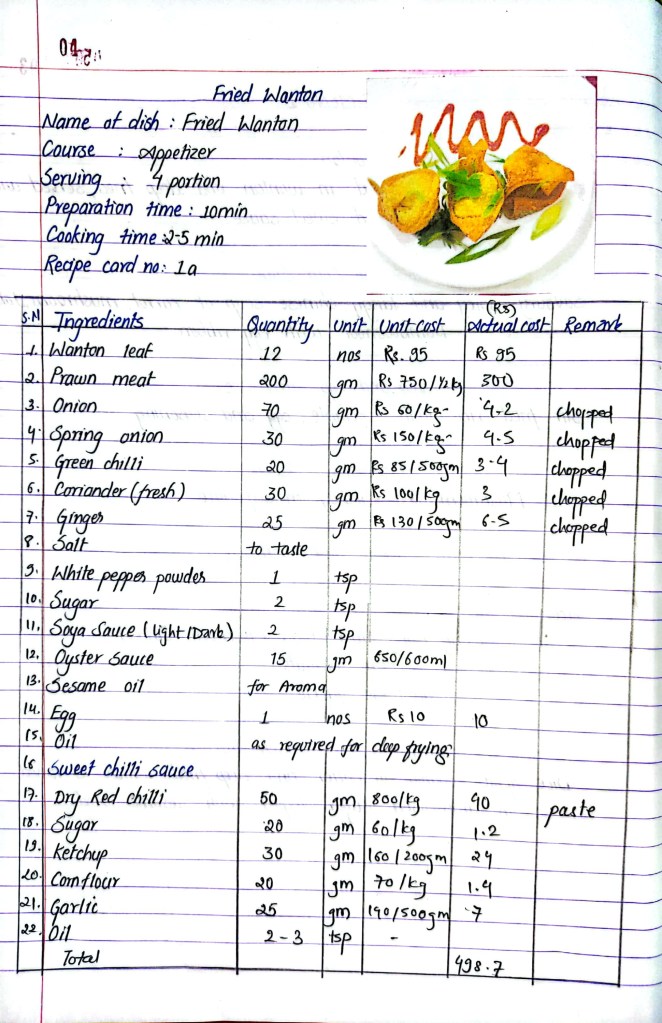 Fried Wanton
Name of dish : Fried Wanton
Course : Appetizer
Serving : 4 portion
Preparation time : 10min
Cooking time 2-5 min
Recipe card no: 1a
S.N Ingredients Quantity Unit Unit cost (Rs) Actual cost Remark
1. Wanton leaf 12 nos Rs. 95 Rs 95
2. Prawn meat 200 gm Rs 750/½kg 300
3. Onion 70 gm Rs 60/kg 4.2 chopped
4. Spring onion 30 gm Rs 150/kg 4.5 chopped
5. Green chilli 20 gm Rs 85/500gm 3.4 chopped
6. Coriander (fresh) 30 gm Rs 100/kg 3 chopped
7. Ginger 25 gm Rs 130/500gm 6.5 chopped
8. Salt to taste
9. White pepper powder 1 tsp
10. Sugar 2 tsp
11. Soya Sauce (light/Dark) 2 tsp
12. Oyster Sauce 15 gm 650/600ml
13. Sesame oil for Aroma
14. Egg 1 nos Rs 10 10
15. Oil as required for deep frying
16 Sweet chilli sauce
17. Dry Red chilli 50 gm 800/kg 40 paste
18. Sugar 20 gm 60/kg 1.2
19. Ketchup 30 gm 160/200gm 24
20. Cornflour 20 gm 70/kg 1.4
21. Garlic 25 gm 140/500gm 7
22. Oil 2-3 tsp -
Total 498.7